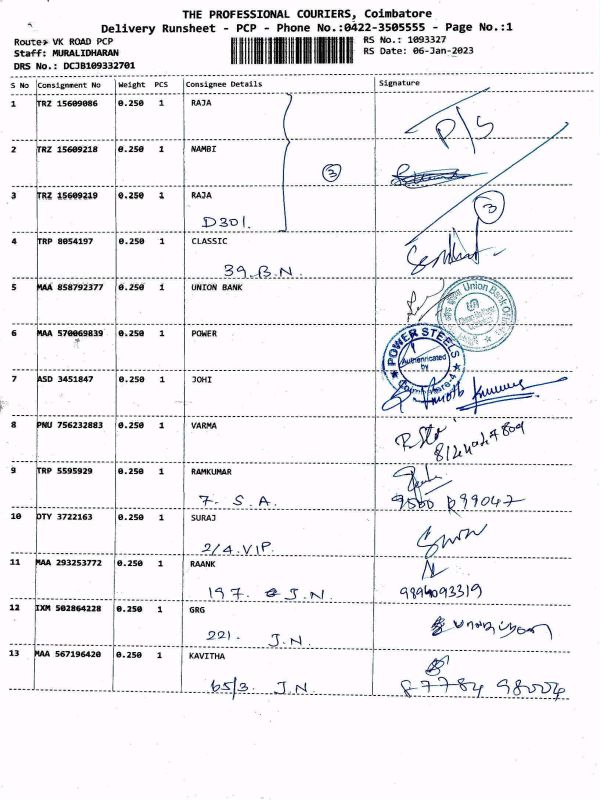 THE PROFESSIONAL COURIERS, Coimbatore
Delivery Runsheet - PCP - Phone No.:0422-3505555 - Page No.:1
Route: VK ROAD PCP RS No.: 1093327
Staff: MURALIDHARAN RS Date: 06-Jan-2023
DRS No.: DCJB109332701
S No Consignment No Weight PCS Consignee Details Signature
1 TRZ 15609086 0.250 1 RAJA
P/S
2 TRZ 15609218 0.250 1 NAMBI
3
3 TRZ 15609219 0.250 1 RAJA
D301. 3
4 TRP 8054197 0.250 1 CLASSIC
39. B.N.
5 MAA 858792377 0.250 1 UNION BANK
Union Bank Of
6 MAA 570069839 0.250 1 POWER
POWER STEELS
Authenticated
by
Coimbatore-4
7 ASD 3451847 0.250 1 JOHI
8 PNU 756232883 0.250 1 VARMA
9 TRP 5595929 0.250 1 RAMKUMAR
7. S.A. 9500 R99047
10 DTY 3722163 0.250 1 SURAJ
2/4.VIP.
11 MAA 293253772 0.250 1 RAANK
197. J.N. 9894093319
12 IXM 502864228 0.250 1 GRG
221. J.N.
13 MAA 567196420 0.250 1 KAVITHA
65/3. J.N. 87784 98004